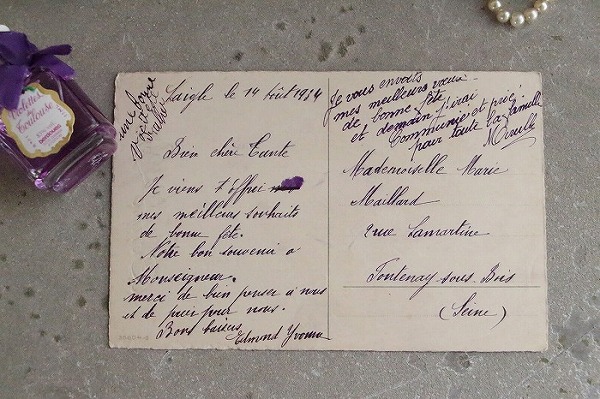 Violettes
de
Toulouse
BERDOUES
une bonne
Laigle le 14 Août 1934
Bien chère Tante
Je viens t'offrir
mes meilleurs souhaits
de bonne fête.
Notre bon souvenir à
Monseigneur.
merci de bien penser à nous
et de prier pour nous.
Bons baisers
Edmond Yvonne
Je vous envoie
mes meilleurs vœux
de bonne fête
et demain j'irai
Communier et prier
pour toute la famille
Mademoiselle Marie
Maillard
2 rue Lamartine
Fontenay-sous-Bois
(Seine)